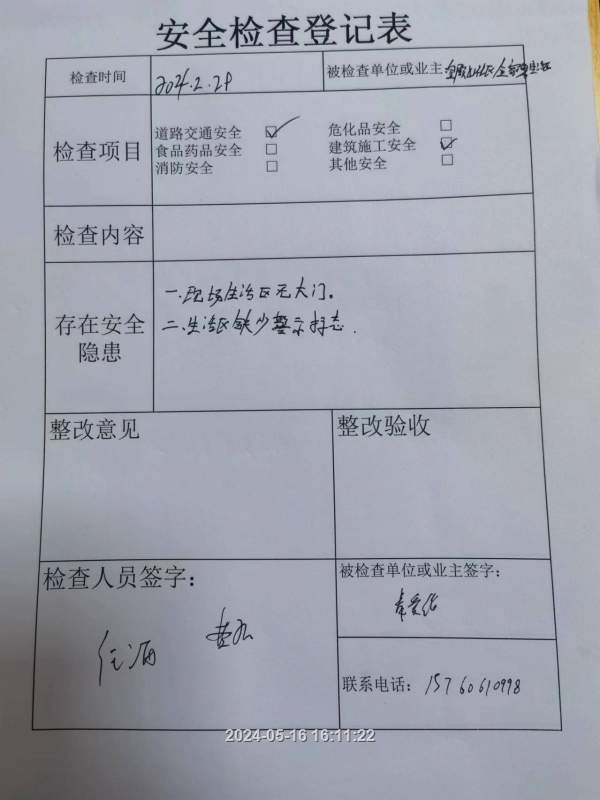 安全检查登记表
检查时间 2024.2.29 被检查单位或业主:
检查项目
道路交通安全 ☑ 危化品安全 □
食品药品安全 □ 建筑施工安全 ☑
消防安全 □ 其他安全 □
检查内容
存在安全隐患
一.现场生活区无大门。
二.生活区缺少警示标志.
整改意见 整改验收
检查人员签字:
被检查单位或业主签字:
联系电话: 15760610998
2024-05-16 16:11:22